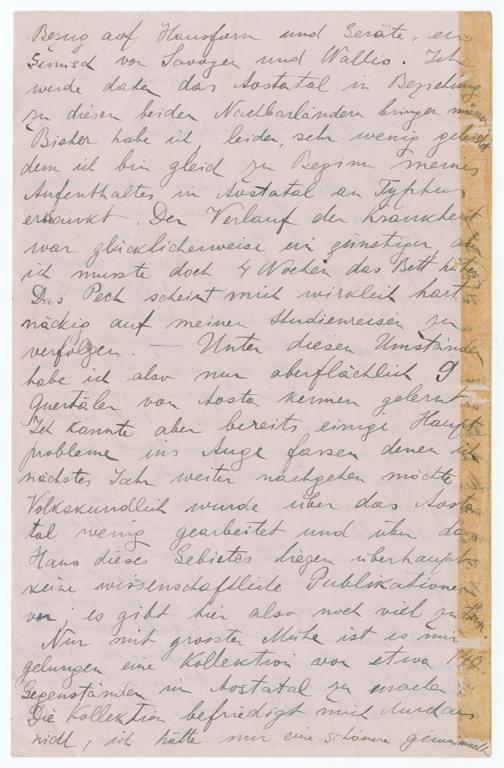 Bezug auf Hausform und Geräte, ein
Gemisch von Savoyen und Wallis. Ich
werde daher das Aostatal in Beziehung
zu diesen beiden Nachbarländern bringen müssen
Bisher habe ich leider, sehr wenig geleistet
dem ich bin gleich zu Beginn meines
Aufenthaltes in Aostatal an Typhus
erkrankt. Der Verlauf der Krankheit
war glücklicherweise ein günstiger, aber
ich musste doch 4 Wochen das Bett hüten
Das Pech scheint mich wirklich hart-
näckig auf meinen Studienreisen zu
verfolgen. — Unter diesen Umständen
habe ich also nur oberflächlich 9
Quertäler von Aosta kennen gelernt.
Ich konnte aber bereits einige Haupt
probleme ins Auge fassen denen ich
nächstes Jahr weiter nachgehen möchte
Volkskundlich wurde über das Aosta
tal wenig gearbeitet und über das
Haus dieses Gebietes liegen überhaupt
keine wissenschaftliche Publikationen
vor, es gibt hier also noch viel zu tun.
Nur mit grosster Mühe ist es mir
gelungen eine Kollektion von etwa
Gegenständen in Aostatal zu machen
Die Kollektion befriedigt mich durchaus
nicht, ich hätte mir eine schönere gewünscht